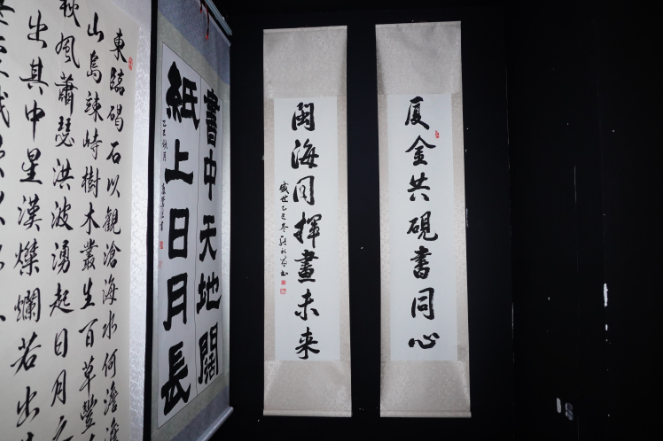 厦金共砚書同心
閩海同揮畫未来
書中天地闊
紙上日月長
東臨碣石以觀滄海水何澹
山島竦峙樹木叢生百草豐
秋風蕭瑟洪波湧起日月
出其中星漢燦爛若出